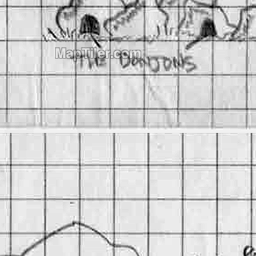 MapTiler.com
THE DONJONS